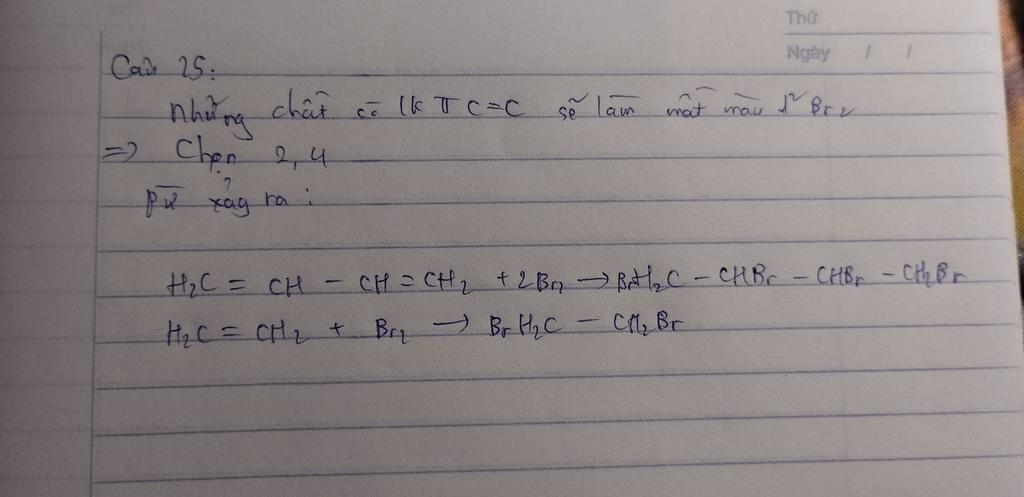 Thứ
Ngày / /
Câu 25:
Những chất có lk π C=C sẽ làm mất màu d² Br₂
=> Chọn 2, 4
pứ xảy ra :
H₂C = CH - CH = CH₂ + 2Br₂ → BrH₂C - CHBr - CHBr - CH₂Br
H₂C = CH₂ + Br₂ → BrH₂C - CH₂Br